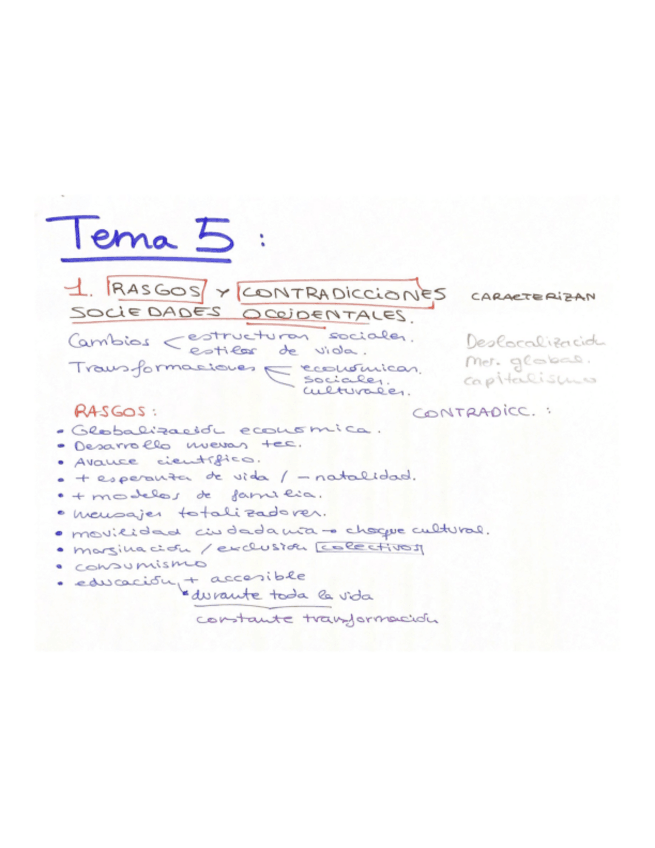 Tema 5 :
1. RASGOS Y CONTRADICCIONES CARACTERIZAN
SOCIEDADES OCCIDENTALES.
Cambios estructuras sociales.
estilos de vida.
Transformaciones económicas.
sociales.
culturales.
Deslocalización
Mer. global.
capitalismo
RASGOS:
CONTRADICC. :
• Globalización económica.
• Desarrollo nuevas tec.
• Avance científico.
• + esperanza de vida / - natalidad.
• + modelos de familia.
• mensajes totalizadores.
• movilidad ciudadanía → choque cultural.
• marginación / exclusión colectivos
• consumismo
• educación, + accesible
durante toda la vida
constante transformación